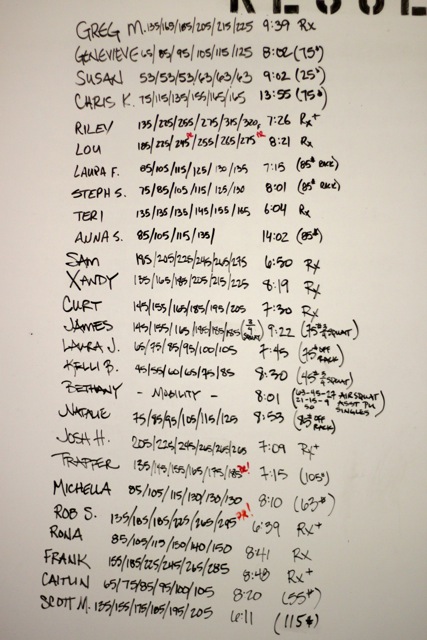 GREG M. 135/165/185/205/215/225 9:39 Rx
GENEVIEVE 65/85/95/105/115/125 8:02 (75#)
SUSAN 53/53/53/63/63/63 9:02 (25#)
CHRIS K. 75/115/135/155/165/165 13:55 (75#)
RILEY 135/225/255/275/315/320 7:26 Rx+
LOU 185/225/245/255/265/275 PR 8:21 Rx
LAURA F. 85/105/115/125/130/135 7:15 (85# RACK)
STEPH S. 75/85/105/115/125/130 8:01 (85# RACK)
TERI 135/135/135/145/155/165 6:04 Rx
ANNA S. 85/105/115/135/ 14:02 (85#)
SAM 185/205/225/245/265/275 6:50 Rx
XANDY 135/165/185/205/215/225 8:19 Rx
CURT 145/155/165/185/195/205 7:30 Rx
JAMES 145/155/165/185/185/185 (3/4 SQUAT) 9:22 (75# 3/4 SQUAT)
LAURA J. 65/75/85/95/100/105 7:45 (75# OFF RACK)
KELLI B. 45/55/60/65/75/85 8:30 (45# 3/4 SQUAT)
BETHANY - MOBILITY - 8:01 (63-45-27 AIR SQUAT 21-15-9 ASST PU SINGLES)
NATALIE 75/85/95/105/115/125 8:53 (OFF RACK)
JOSH H. 205/225/245/265/265/265 7:09 Rx+
TRAPPER 135/145/155/165/175/185 PR! 7:15 (105#)
MICHELLA 85/105/115/130/130/130 8:10 (63#)
ROB S. 135/185/185/225/265/295 PR! 6:39 Rx+
RONA 85/105/115/130/140/150 8:41 Rx
FRANK 155/185/225/245/265/285 8:48 Rx+
CAITLIN 65/75/85/95/100/105 8:20 (55#)
SCOTT M. 135/155/175/185/195/205 6:11 (115#)